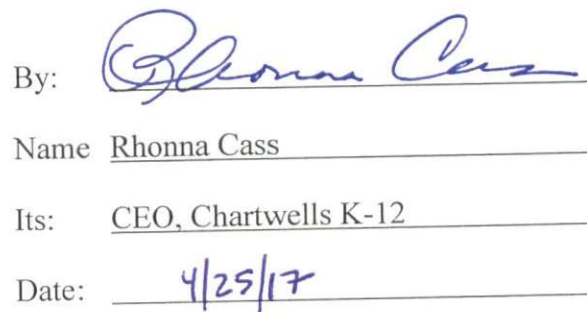 By: Rhonna Cass
Name Rhonna Cass
Its: CEO, Chartwells K-12
Date: 4/25/17